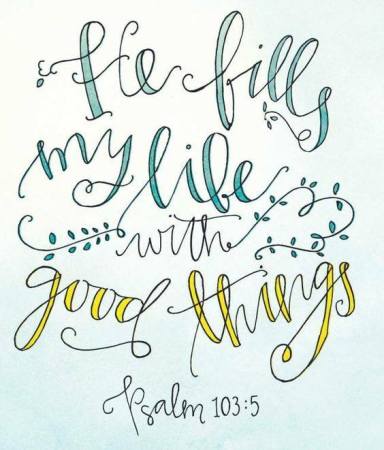 He fills
my life
with
good things
Psalm 103:5